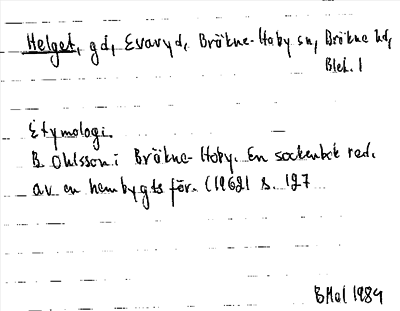 Helget, gd, Evaryd, Bräkne-Hoby sn, Bräkne hd,
Blek. l
Etymologi.
B. Ohlsson i Bräkne-Hoby. En sockenbok red.
av en hembygts för. (1962) s. 127
BHol 1984